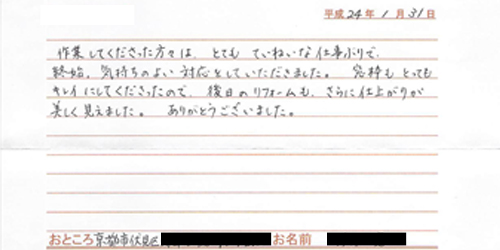 平成24年1月31日
作業してくださった方々は、とてもていねいな仕事ぶりで、
終始、気持ちのよい対応をしていただきました。窓枠もとっても
キレイにしてくださったので、後日のリフォームも、さらに仕上がりが
美しく見えました。ありがとうございました。
おところ京都市伏見区 お名前